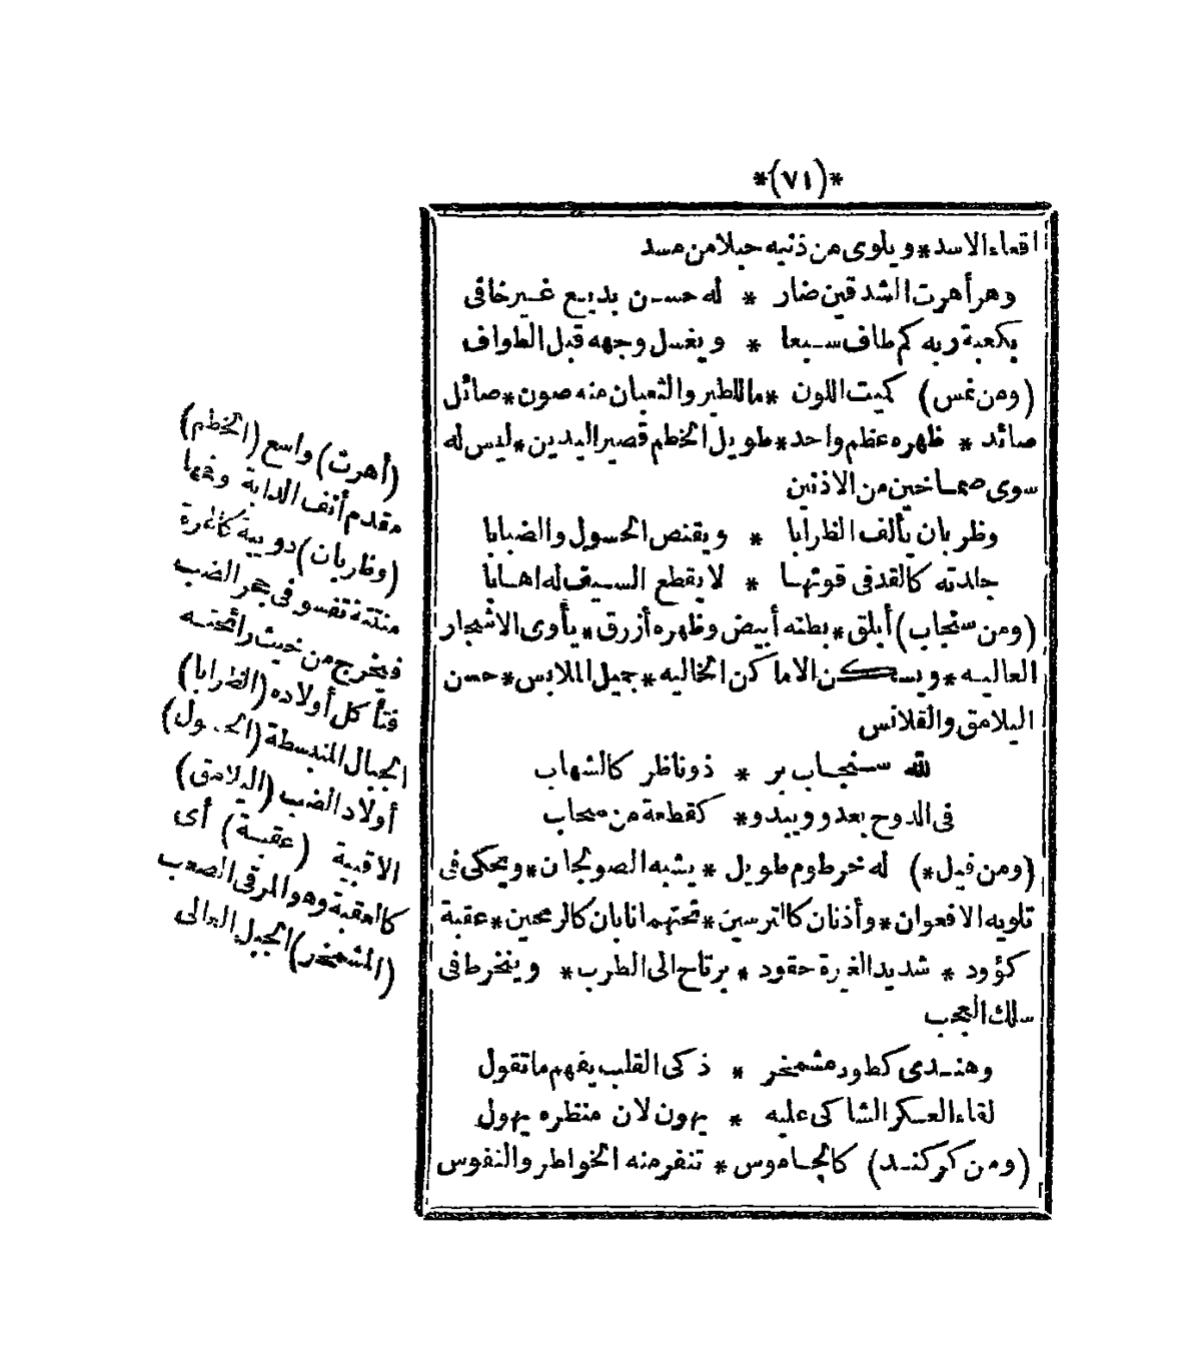 *(٧١)*
اقعاء الاسد * ويلوى من ذنبه حبلا من مسد
وهر أهرت الشدقين ضار * له حسن بديع غير خافى
بكعبة ربه كم طاف سبعا * ويغسل وجهه قبل الطواف
(ومن نمس) كميت اللون * ماللطير والثعبان منه صون * صائل
صائد * ظهره عظم واحد * طويل الخطم قصير اليدين * ليس له
سوى صماخين من الاذنين
وظربان يألف الظرابا * ويقتنص الحسول والضبابا
جلدته كالقد فى قوتها * لا يقطع السيف له اهابا
(ومن سنجاب) أبلق * بطنه أبيض وظهره أزرق * يأوى الاشجار
العاليه * ويسكن الاماكن الخاليه * جميل الملابس * حسن
اليلامق والقلانس
لله سنجاب بر * ذو ناظر كالشهاب
فى الدوح يعدو ويبدو * كقطعة من سحاب
(ومن فيل *) له خرطوم طويل * يشبه الصولجان * ويحكى فى
تلويه الافعوان * وأذنان كالترسين * تحتهما نابان كالرمحين * عقبة
كؤود * شديد الغيرة حقود * يرتاح الى الطرب * وينخرط فى
سلك العجب
وهندى كطود مشمخر * ذكى القلب يفهم ما تقول
لقاء العسكر الشاكى عليه * يهون لان منظره يهول
(ومن كركند) كالجاموس * تنفر منه الخواطر والنفوس
(أهرت) واسع (الخطم)
مقدم أنف الدابة وفمها
(وظربان) دويبة كالهرة
منتنة تفسو فى جحر الضب
فيخرج من خبث رائحته
فتأكل أولاده (الظرابا)
الجبال المنبسطة (الحسول)
أولاد الضب (اليلامق)
الاقبية (عقبة) أى
كالعقبة وهو المرقى الصعب
(المشمخر) الجبل العالى